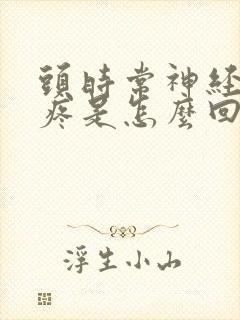 頭時常神経
疼是怎麼回
浮生小山